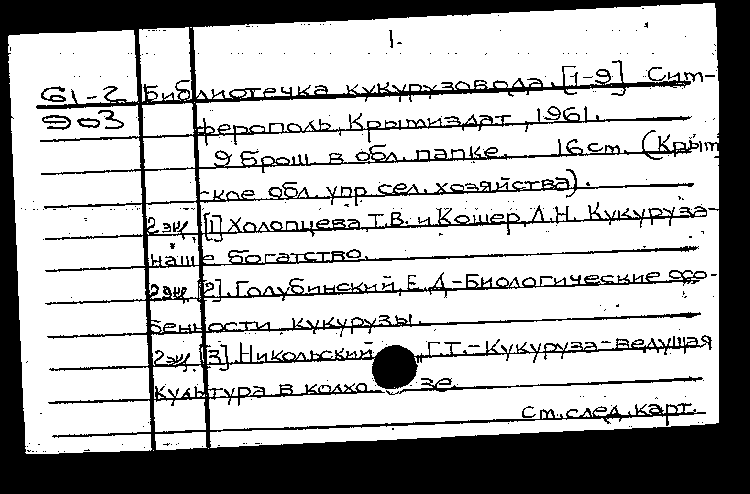 1.
61-2 Библиотечка кукурузовода. [1-9] Сим-
903 ферополь, Крымиздат, 1961.
9 брош. в обл. папке. 16 см. (Крым
ское обл. упр. сел. хозяйства).
2 экз. [1] Холопцева, Т.В. и Кошер, Л.Н. Кукуруза-
наше богатство.
2 экз. [2]. Голубинский, Е.Д.-Биологические осо-
бенности кукурузы.
2 экз. [3]. Никольский, Г.Т.-Кукуруза-ведущая
культура в колхозе.
См. след. карт.